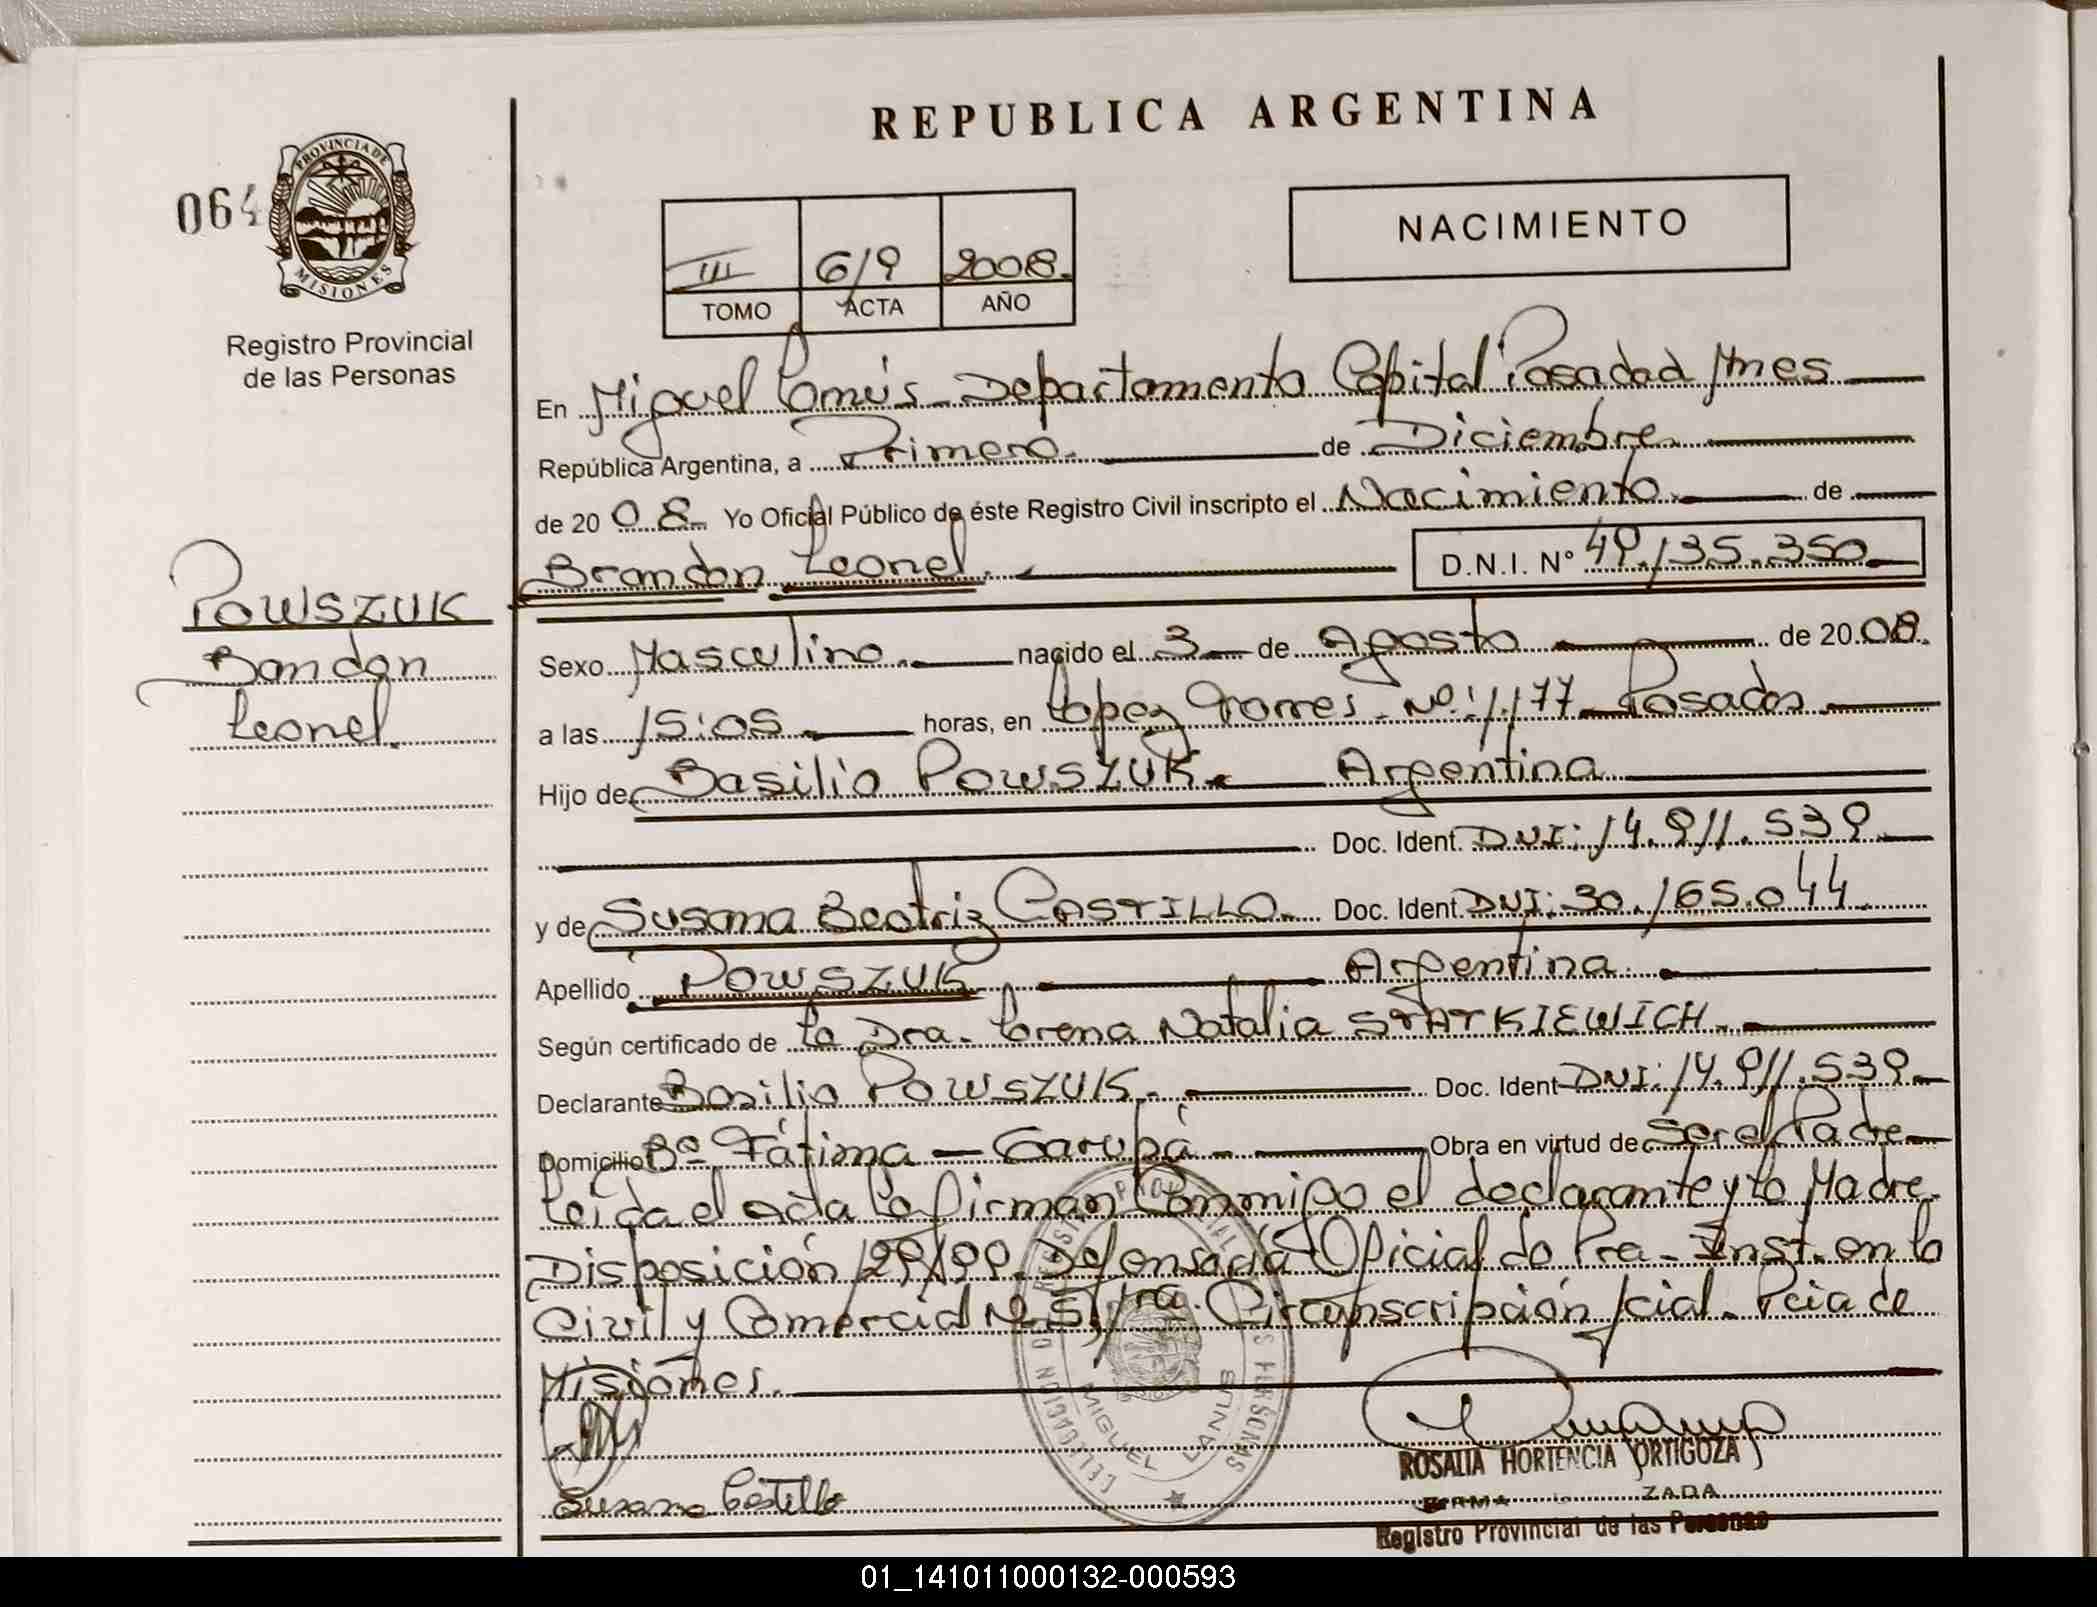 REPUBLICA ARGENTINA
064
PROVINCIA DE
MISIONES
Registro Provincial
de las Personas
NACIMIENTO
III 619 2008.
TOMO ACTA AÑO
En Miguel Lanús - Departamento Capital Posadas Mnes
República Argentina, a Primero. de Diciembre
de 2008. Yo Oficial Público de éste Registro Civil inscripto el Nacimiento de
Brandon Leonel. D.N.I. Nº 49.135.350
POWSZUK
Brandon
Leonel.
Sexo Masculino. nacido el 3 de Agosto de 2008.
a las 15:05 horas, en Lopez Torres - Nº: 1.177 - Posadas
Hijo de Basilio POWSZUK Argentina
Doc. Ident. DNI: 14.911.539
y de Susana Beatriz CASTILLO. Doc. Ident DNI: 30.165.044
Apellido POWSZUK Argentina.
Según certificado de la Dra. Lorena Natalia STATKIEWICH.
Declarante Basilio POWSZUK. Doc. Ident DNI: 14.911.539
Domicilio Bº Fátima - Garupá - Obra en virtud de Ser el Padre
Leída el acta la firman Conmigo el declarante y la Madre.
Disposición 129/99. Defensoría Oficial de 1ra - Inst. en lo
Civil y Comercial Nº 5, 1ra. Circunscripción Jcial. Pcia de
Misiones.
MIGUEL LANUS
Susana Castillo
ROSALIA HORTENCIA ORTIGOZA
Registro Provincial de las Personas
01_141011000132-000593